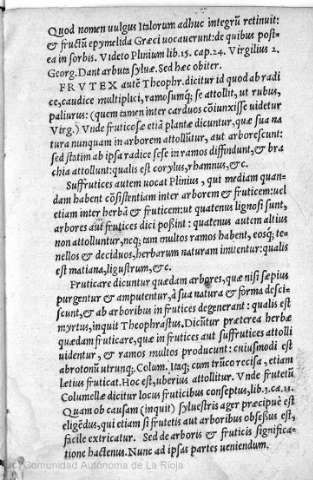 Quod nomen uulgus Italorum adhuc integrũ retinuit:
& fructũ epymelida Græci uocauerunt: de quibus post-
ea in sorbis. Videto Plinium lib. 15. cap. 24. Virgilius 2.
Georg. Dant arbuta syluæ. Sed hæc obiter.
FRVTEX autẽ Theophr. dicitur id quod ab radi
ce, caudice multiplici, ramosumq́; se attollit, ut rubus,
paliurus: (quem tamen inter carduos cõiunxisse uidetur
Virg.) Vnde fruticosæ etiã plantæ dicuntur, quæ sua na
tura nunquam in arborem attollũtur, aut arborescunt:
sed statim ab ipsa radice sese in ramos diffundunt, & bra
chia attollunt: qualis est corylus, rhamnus, &c.
Suffrutices autem uocat Plinius, qui mediam quan-
dam habent cõsistentiam inter arborem & fruticem: uel
etiam inter herbã & fruticem: ut quatenus lignosi sunt,
arbores aut frutices dici possint: quatenus autem altius
non attolluntur, neq; tam multos ramos habent, eosq́; te-
nellos & deciduos, herbarum naturam imitentur: qualis
est matiana, ligustrum, &c.
Fruticare dicuntur quædam arbores, quæ nisi sæpius
purgentur & amputentur, à sua natura & forma desci-
scunt, & ab arboribus in frutices degenerant: qualis est
myrtus, inquit Theophrastus. Dicũtur præterea herbæ
quædam fruticare, quæ in frutices aut suffrutices attolli
uidentur, & ramos multos producunt: cuiusmodi est
abrotonũ utrunq;. Colum. Itaq; cum trũco recisa, etiam
lætius fruticat. Hoc est, uberius attollitur. Vnde frutetũ
Columellæ dicitur locus fruticibus conseptus, lib. 3. ca. 11.
Quam ob causam (inquit) syluestris ager præcipuè est
eligẽdus, qui etiam si frutetis aut arboribus obsessus est,
facile extricatur. Sed de arboris & fruticis significa-
tione hactenus. Nunc ad ipsas partes ueniendum.
Comunidad Autónoma de La Rioja